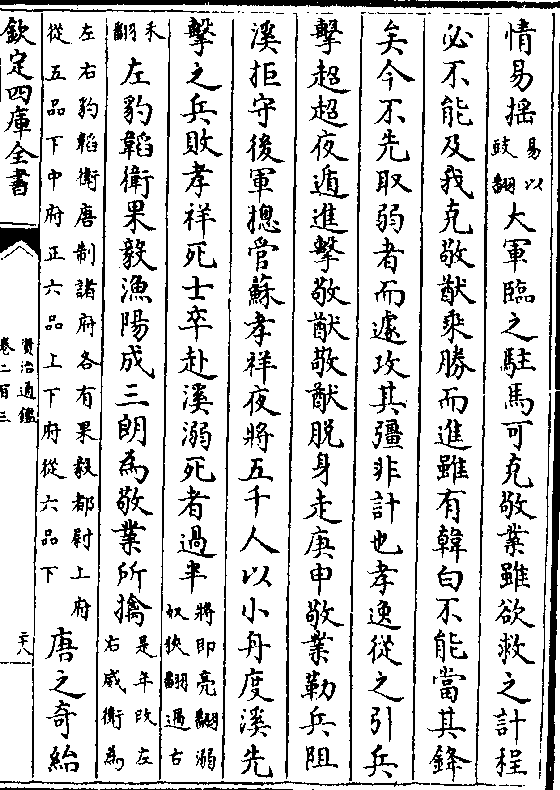 情易摇易以豉翻大軍臨之駐馬可克敬業雖欲救之計程
必不能及我克敬猷乘勝而進雖有韓白不能當其鋒
矣今不先取弱者而遽攻其彊非計也孝逸從之引兵
擊超超夜遁進擊敬猷敬猷脱身走庚申敬業勒兵阻
溪拒守後軍摠管蘇孝祥夜將五千人以小舟度溪先
擊之兵敗孝祥死士卒赴溪溺死者過半將即亮翻溺奴狄翻過古
禾翻左豹韜衛果毅漁陽成三朗為敬業所擒是年改左右威衛為
左右豹韜衛唐制諸府各有果毅都尉上府從五品下中府正六品上下府從六品下唐之奇紿
欽定四庫全書
資治通鑑
卷二百三
二十八